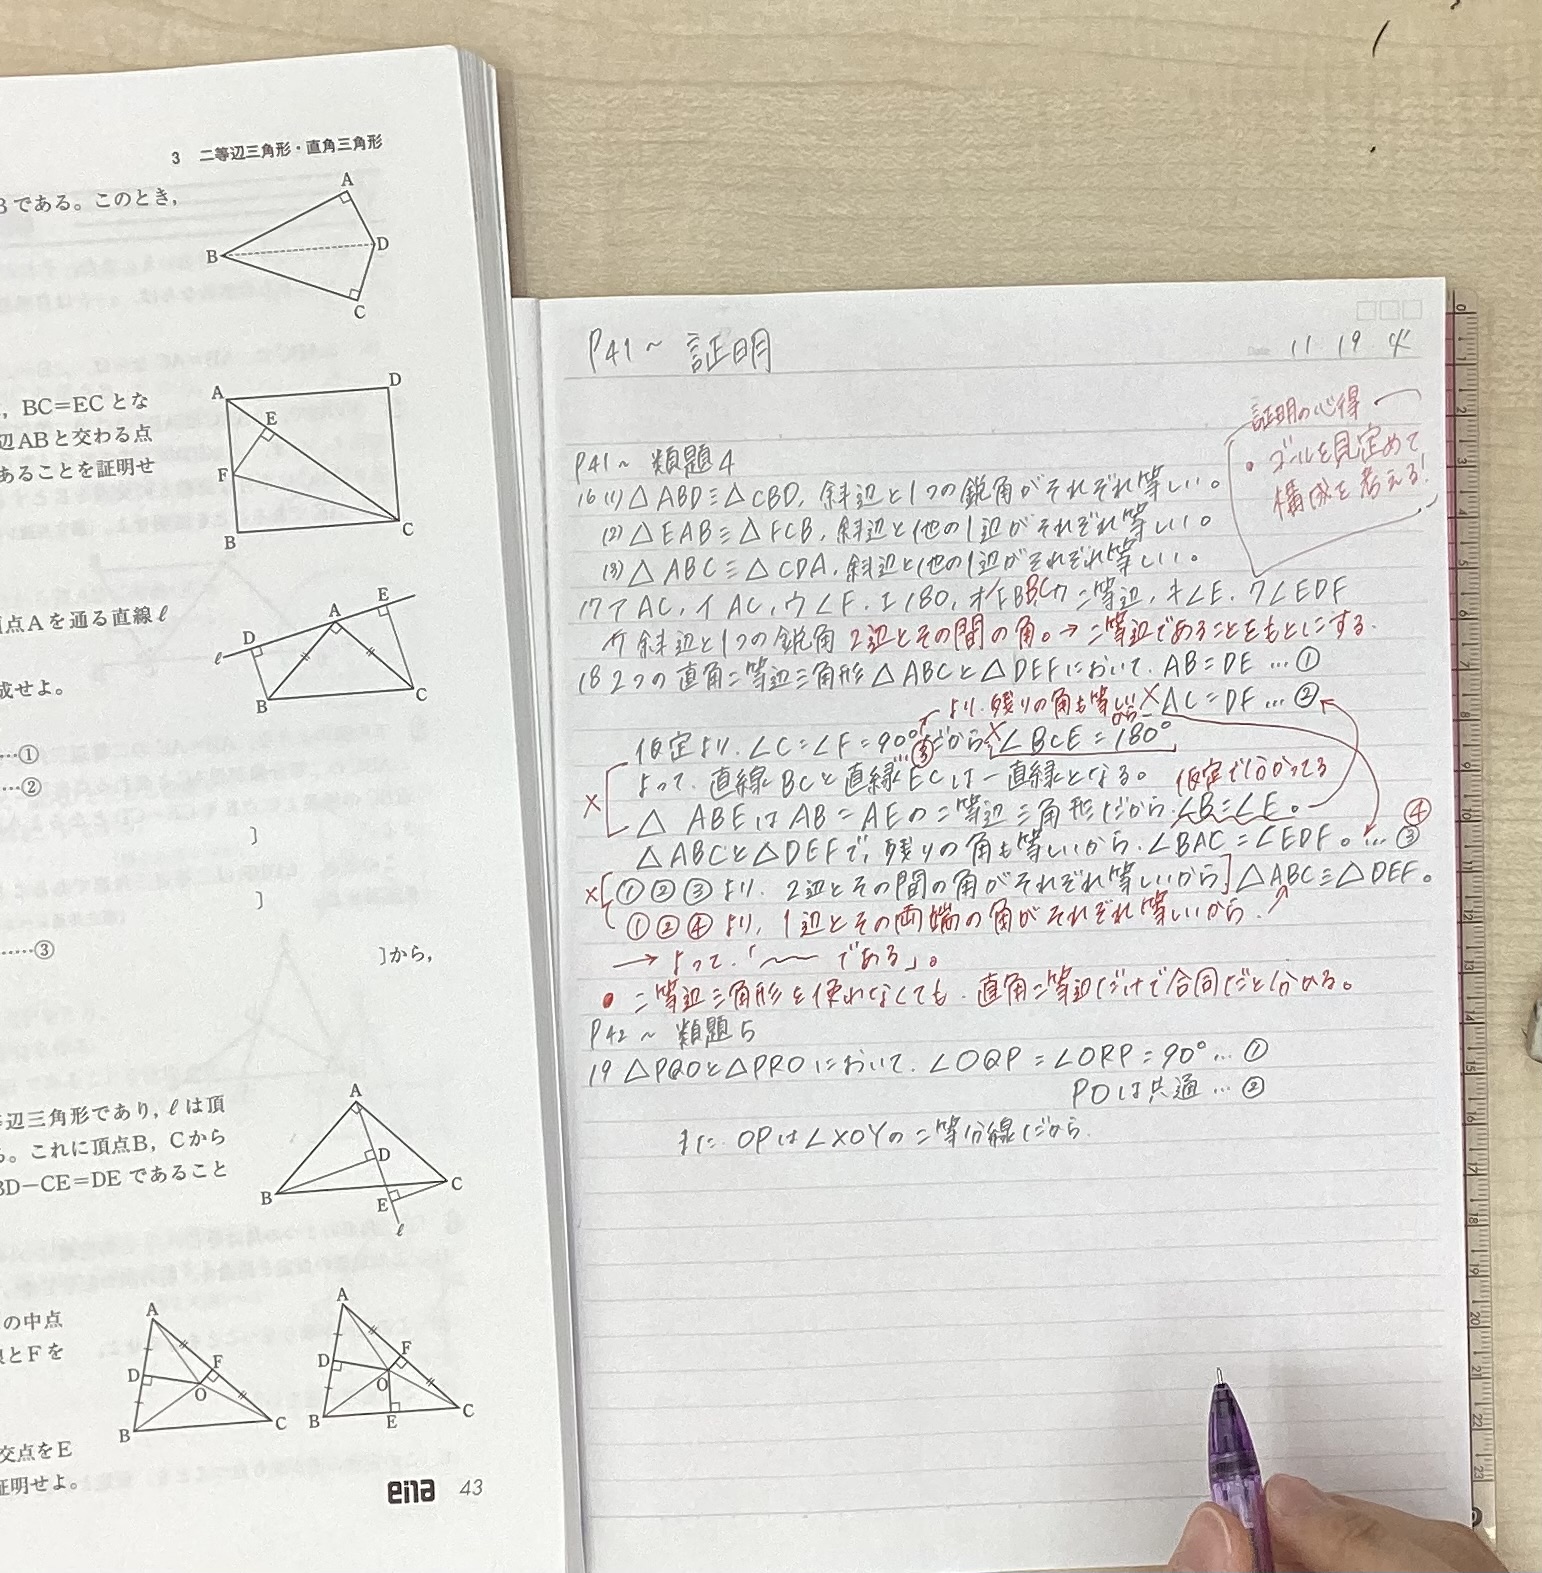 3 二等辺三角形・直角三角形
Bである。このとき,
A
B
D
C
, BC=ECとな
辺ABと交わる点
あることを証明せ
A
D
E
F
B
C
点Aを通る直線ℓ
成せよ。
D
A
E
ℓ
B
C
……①
……②
]
]
……③
]から,
辺三角形であり,ℓは頂
。これに頂点B,Cから
BD−CE=DEであること
A
D
B
C
E
ℓ
の中点
とFを
A
D
F
O
B
C
A
D
F
O
B
E
C
交点をE
証明せよ。
ena 43
P41~ 証明
Date 11.19 火
証明の心得
・ゴールを見定めて
構成を考える!
P41~ 類題4
16(1)△ABD≡△CBD, 斜辺と1つの鋭角がそれぞれ等しい。
(2)△EAB≡△FCB, 斜辺と他の1辺がそれぞれ等しい。
(3)△ABC≡△CDA, 斜辺と他の1辺がそれぞれ等しい。
17ア AC, イ AC, ウ∠F, エ180, オ BC カ 二等辺, キ∠E, ク∠EDF
ケ 斜辺と1つの鋭角 2辺とその間の角。→二等辺であることをもとにする。
18 2つの直角二等辺三角形△ABCと△DEFにおいて, AB=DE…①
より, 残りの角も等しいから × AC=DF…②
仮定より, ∠C=∠F=90°…③だから ×∠BCE=180°
よって, 直線BCと直線ECは一直線となる。 仮定で分かってる
× △ABEはAB=AEの二等辺三角形だから, ∠B=∠E。
△ABCと△DEFで, 残りの角も等しいから, ∠BAC=∠EDF。…③ ④
×[①②③より, 2辺とその間の角がそれぞれ等しいから]△ABC≡△DEF。
①②④より, 1辺とその両端の角がそれぞれ等しいから,
→よって,「〜〜である」。
・二等辺三角形を使わなくても, 直角二等辺だけで合同だと分かる。
P42~ 類題5
19 △PQOと△PROにおいて, ∠OQP=∠ORP=90°…①
POは共通…②
また, OPは∠XOYの二等分線だから,